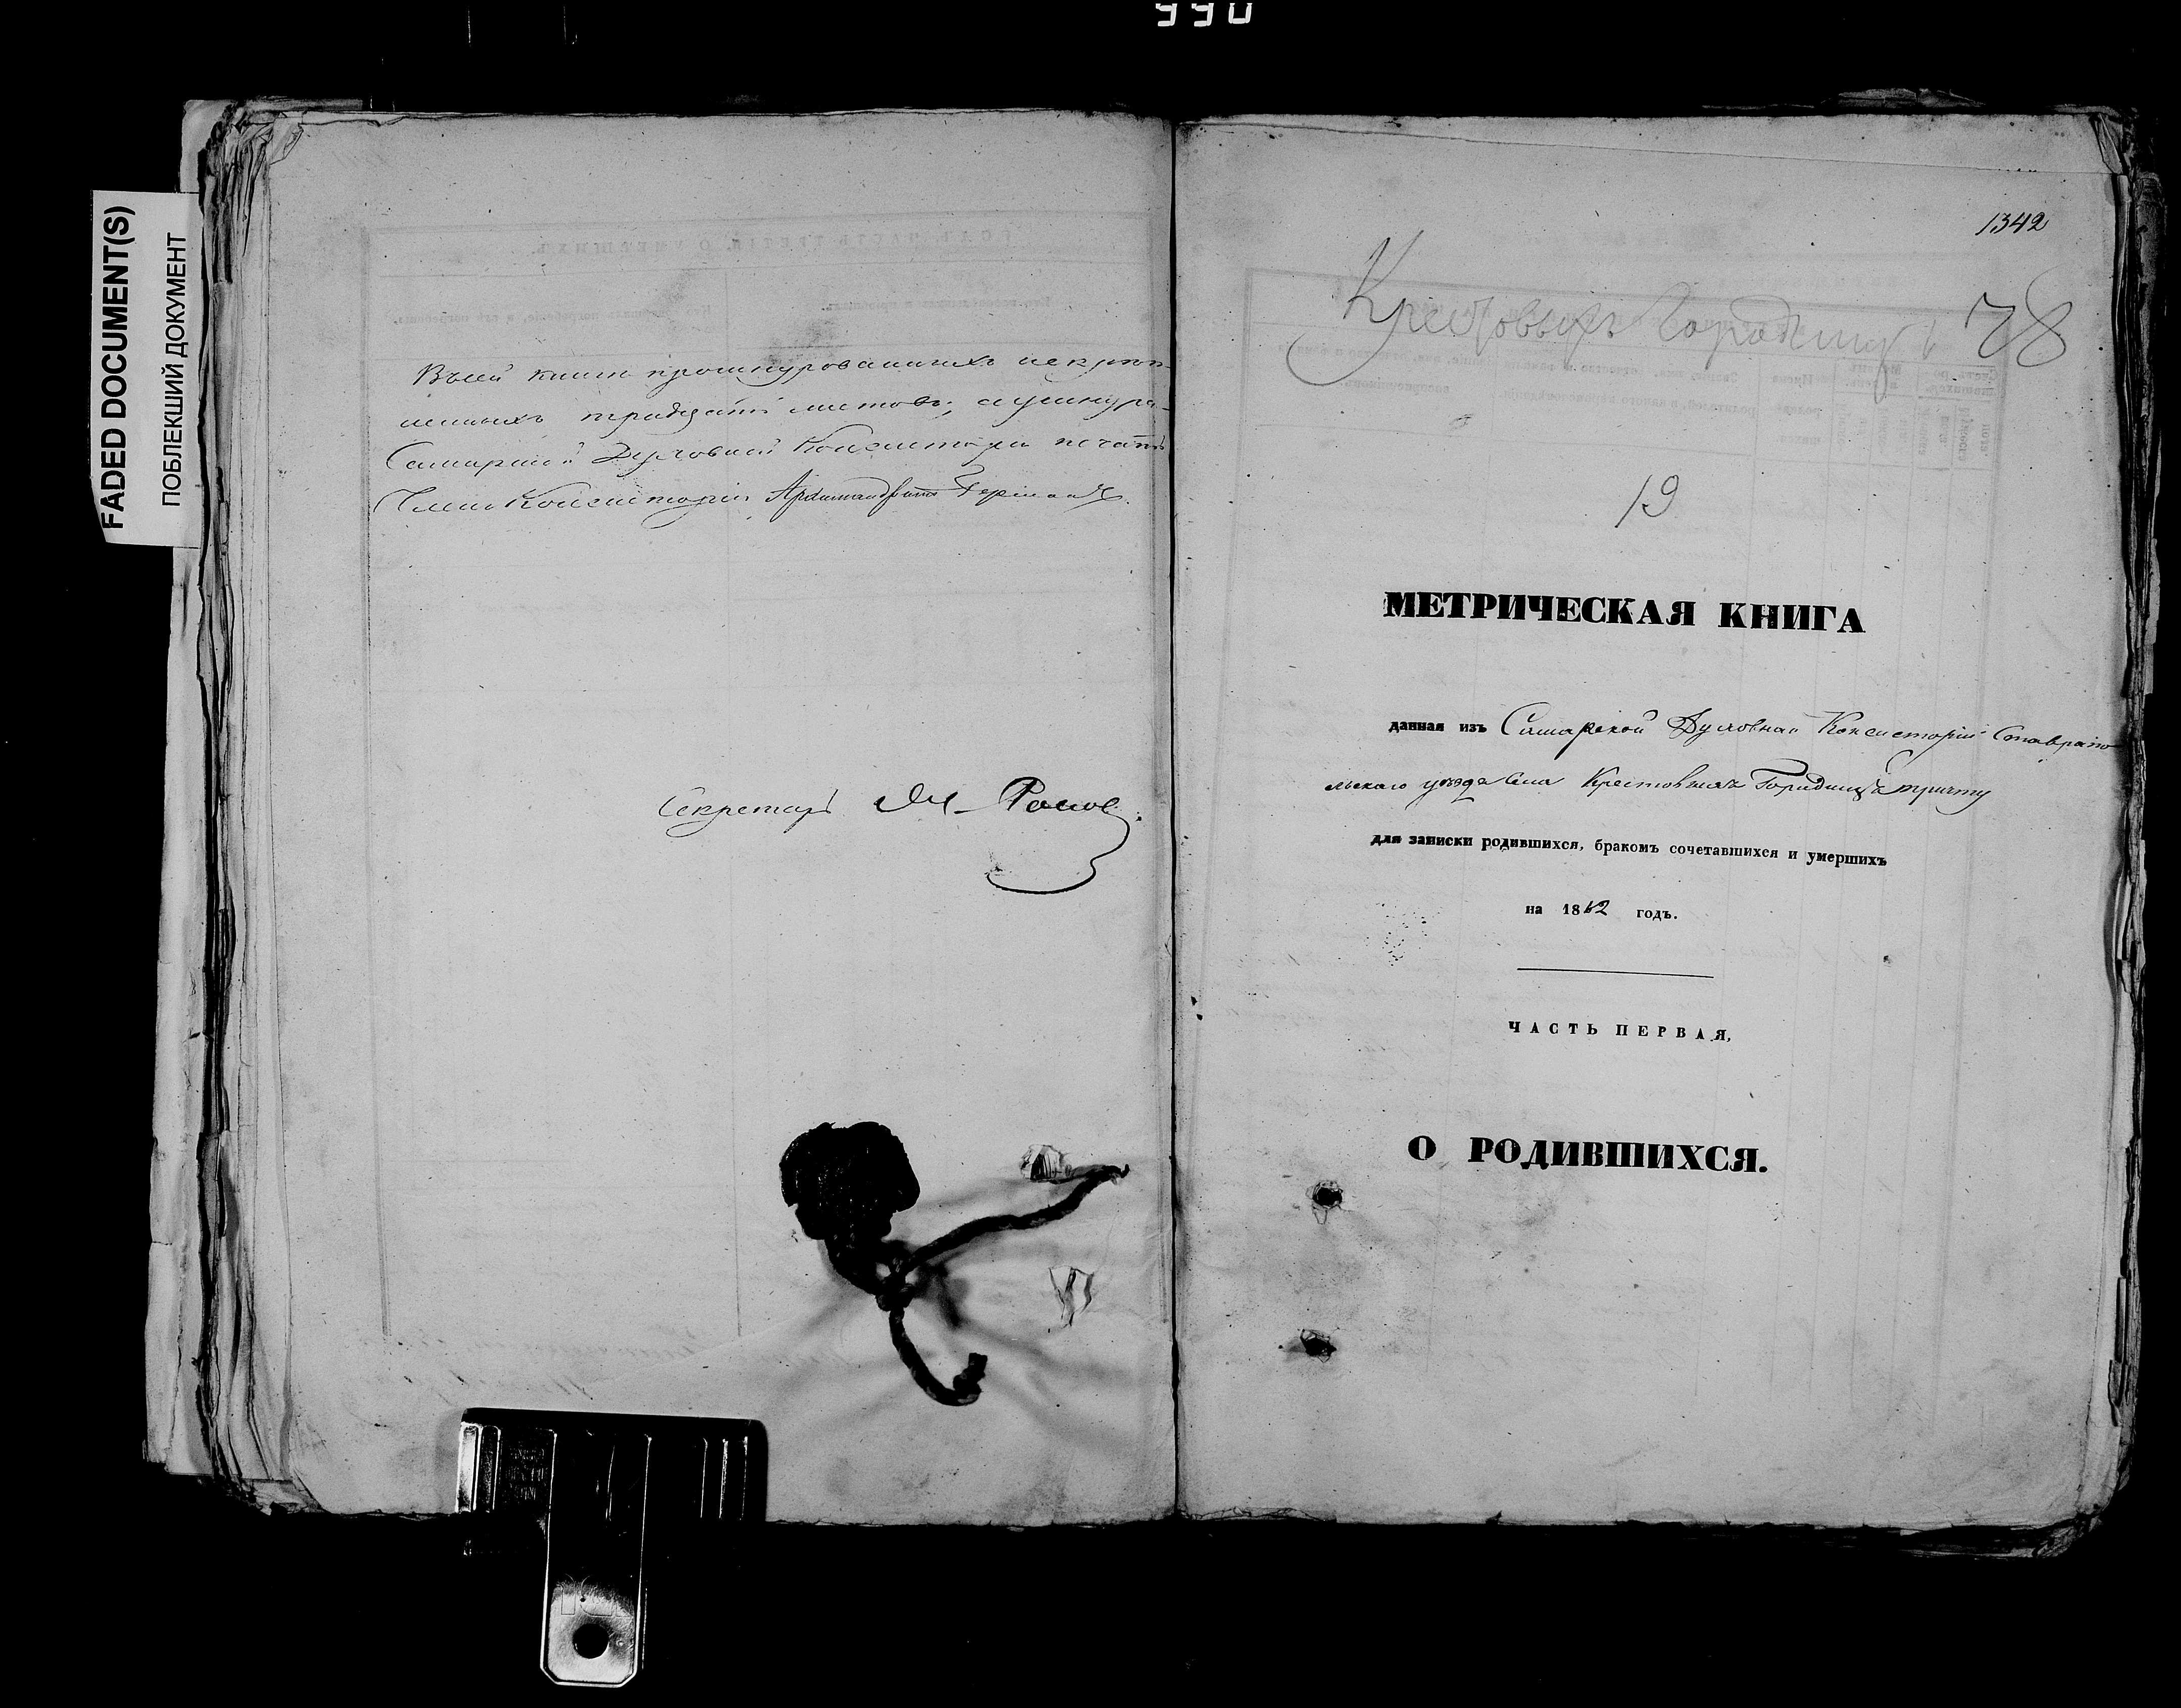 990
FADED DOCUMENT(S)
ПОБЛЕКШИЙ ДОКУМЕНТ
Въ сей книгѣ прошнурованныхъ и скрѣп-
ленныхъ тридцать листовъ; а у шнура
Самарской Духовной Консисторіи печать
Членъ Консисторіи Архимандритъ
Секретарь
1342
Крестовыхъ Городищъ 78
19
МЕТРИЧЕСКАЯ КНИГА
данная изъ Самарской Духовной Консисторіи Ставропо
льскаго уѣзда Села Крестовыхъ Городищъ причту
для записки родившихся, бракомъ сочетавшихся и умершихъ
на 1862 годъ.
ЧАСТЬ ПЕРВАЯ,
О РОДИВШИХСЯ.